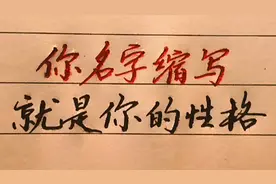 你名字缩写
就是你的性格